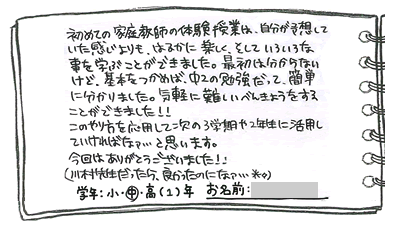 初めての家庭教師の体験授業は、自分が予想して
いた感じよりも、はるかに楽しく、そしていろいろな
事を学ぶことができました。最初は分からない
けど、基本をつかめば、中2の勉強だって、簡単
に分かりました。気軽に難しいべんきょうをする
ことができました!!
このやり方を応用して次の3学期や2年生に活用し
ていければなァ…と思います。
今回はありがとうございました!!
(川村先生だったら、良かったのになァ…*。。)
学年:小・中・高(1)年 お名前: